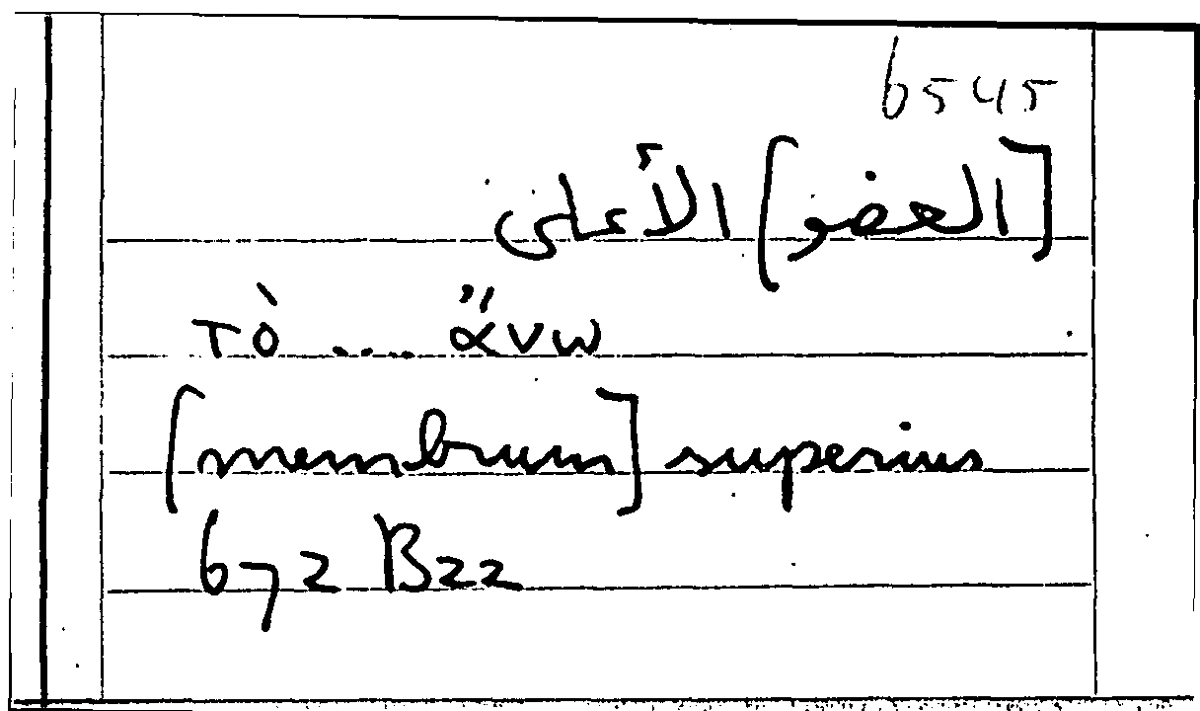 6545
[العضو] الأعلى
τὸ .... ἄνω
[membrum] superius
672 B22